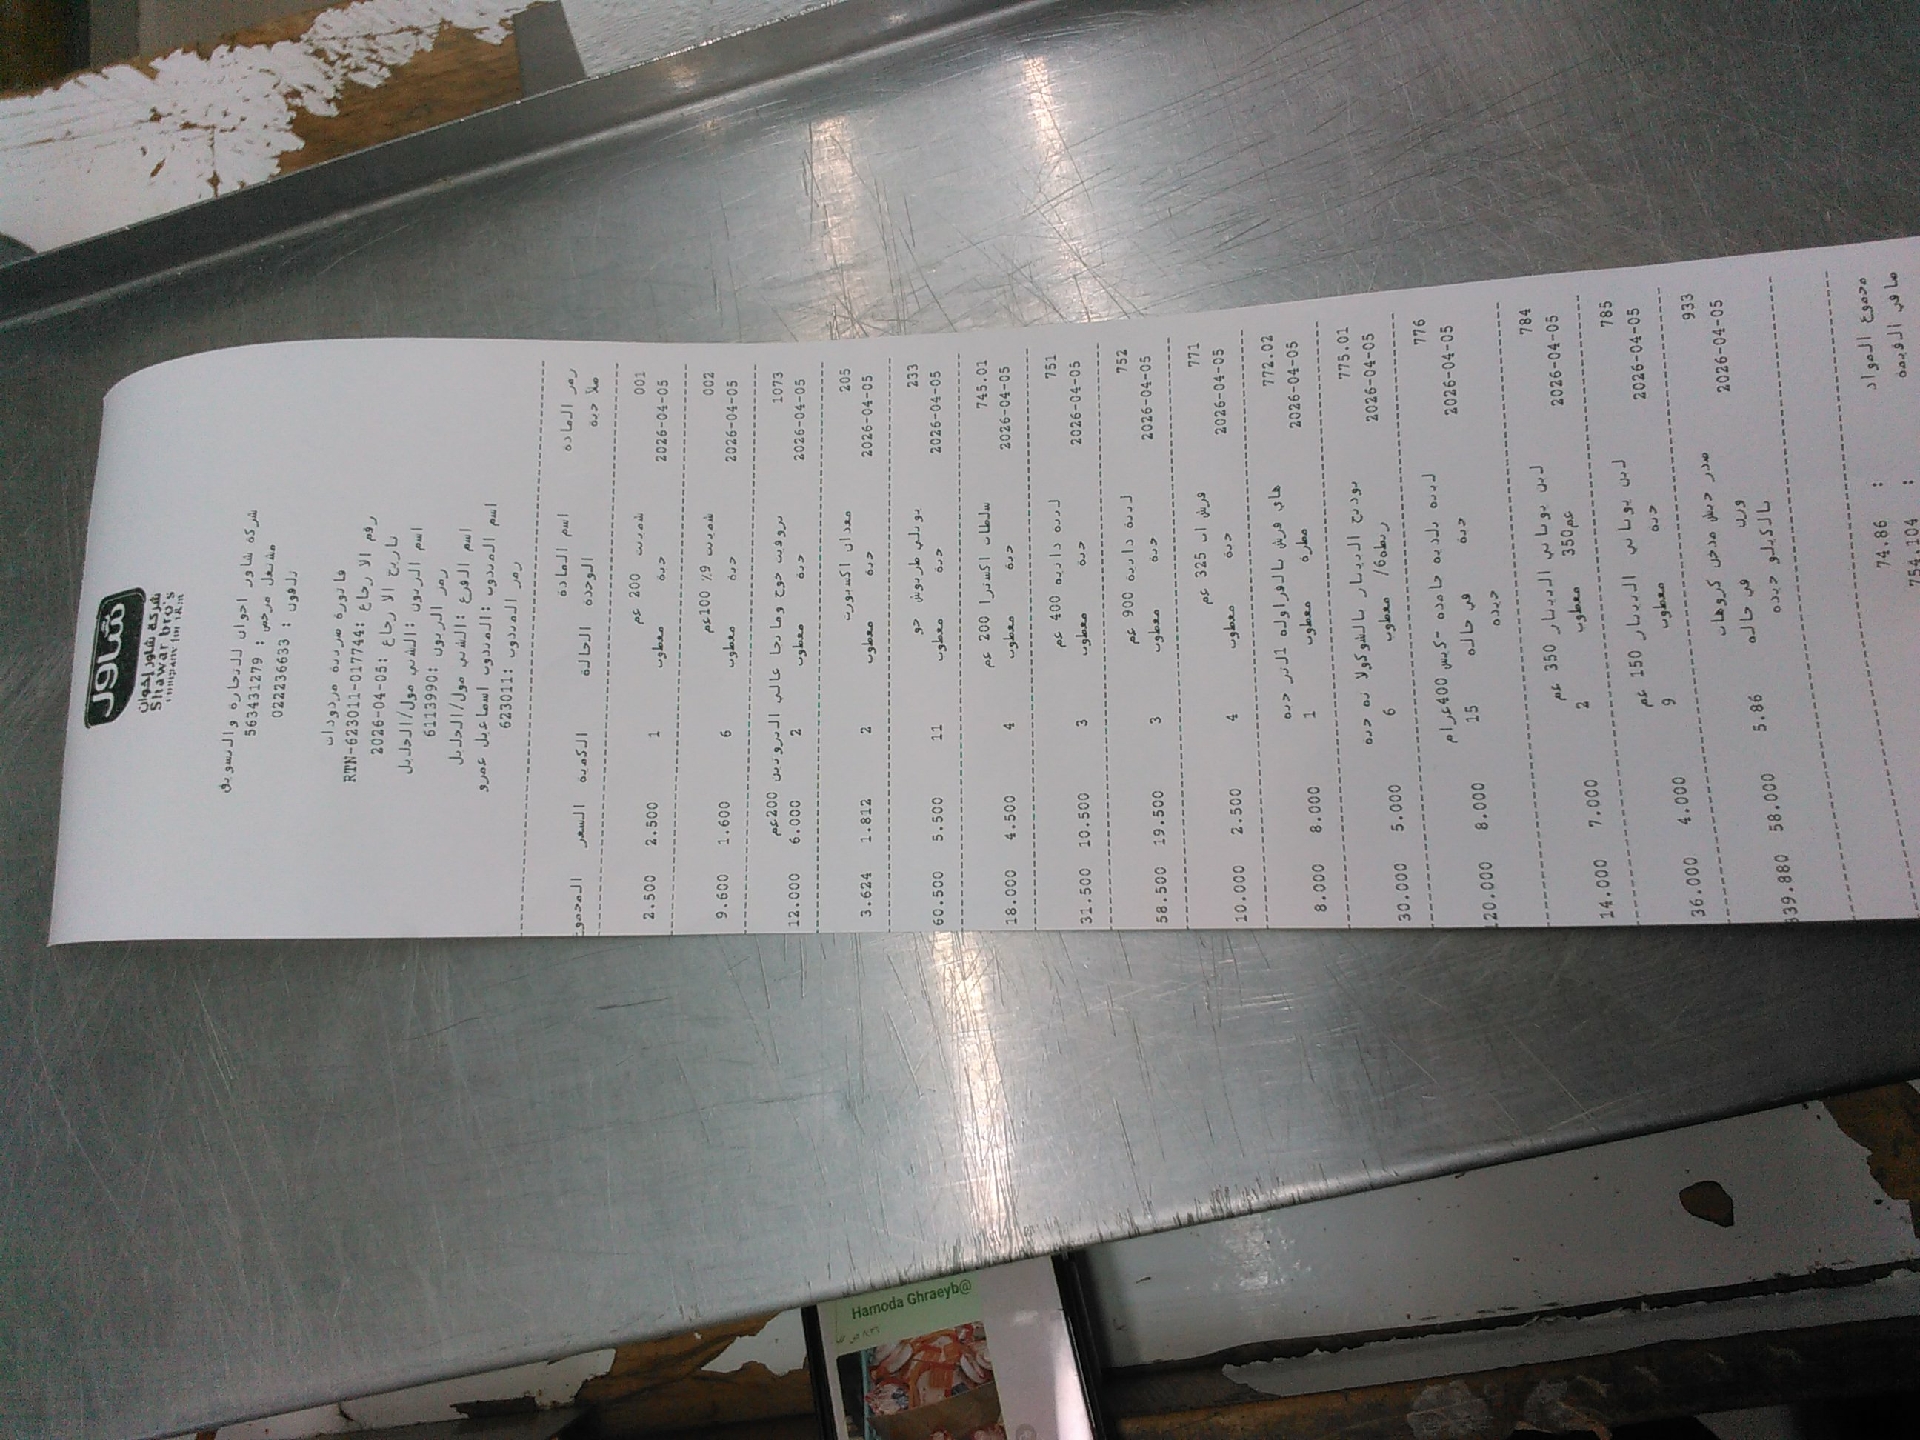 شاور
شركة شاور إخوان
Shawar bro's
شركة شاور اخوان للتجارة والتسويق
مشتغل مرخص : 563431279
تلفون : 022236633
فاتورة ضريبية مردودات
رقم الارجاع :RTN-623011-017744
تاريخ الارجاع :2026-04-05
اسم الزبون :الشني مول/الخليل
رمز الزبون :6113990
اسم الفرع :الشني مول/الخليل
اسم المندوب :المندوب اسماعيل عمرو
رمز المندوب :623011
رمز المادة اسم المادة الكمية السعر المجموع
صلاحية الوحدة الحالة
001 شمينت 200 غم
2026-04-05 حبة معطوب 1 2.500 2.500
002 شمينت 9% 100غم
2026-04-05 حبة معطوب 6 1.600 9.600
1073 بروفيت خوخ ومانجا عالي البروتين 200غم
2026-04-05 حبة معطوب 2 6.000 12.000
205 معدان اكسبورت
2026-04-05 حبة معطوب 2 1.812 3.624
233 بولي طربوش جو
2026-04-05 حبة معطوب 11 5.500 60.500
745.01 سلطات اكسترا 200 غم
2026-04-05 حبة معطوب 4 4.500 18.000
751 لبنة دانية 400 غم
2026-04-05 حبة معطوب 3 10.500 31.500
752 لبنة دانية 900 غم
2026-04-05 حبة معطوب 3 19.500 58.500
771 فريش اب 325 غم
2026-04-05 حبة معطوب 4 2.500 10.000
772.02 هاي فريش بالفراولة لتر حبة
2026-04-05 معطوب 1 8.000 8.000
775.01 بودنج البينار بالشوكولاته حبة
2026-04-05 ربطة/6 معطوب 6 5.000 30.000
776 لبنة بلدية جامدة -كيس 400غرام
2026-04-05 حبة في حالة 15 8.000 120.000
جيدة
784 لبن يوناني البينار 350 غم
2026-04-05 غم350 معطوب 2 7.000 14.000
785 لبن يوناني البينار 150 غم
2026-04-05 حبة معطوب 9 4.000 36.000
933 صدر حبش مدخن كروهات
2026-04-05 وزن في حالة 5.86 58.000 339.880
بالكيلو جيدة
مجموع المواد : 74.86
صافي القيمة : 754.104
Hamoda Ghraeyb@